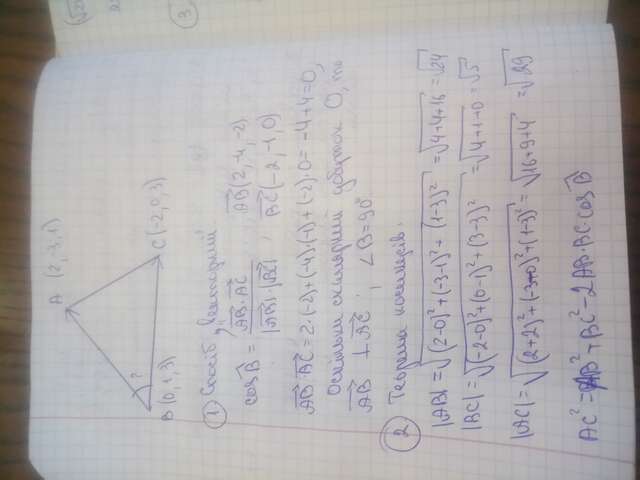 ③
A (2, -3, 1)
B (0, 1, 3)
C (-2, 0, 3)
?
① Спосіб векторний
cos B = AB·AC / |AB|·|BC| , AB(2, -4, -2) BC(-2, -1, 0)
AB·BC = 2·(-2)+(-4)·(-1)+(-2)·0 = -4+4=0,
Оскільки скалярний добуток 0, то
AB ⊥ AC , ∠B=90°
② Теорема косинусів.
|AB| = √(2-0)²+(-3-1)²+(1-3)² = √4+4+16 = √24
|BC| = √(-2-0)²+(0-1)²+(3-3)² = √4+1+0 = √5
|AC| = √(2+2)²+(-3+0)²+(1-3)² = √16+9+4 = √29
AC² = AB²+BC²-2AB·BC·cos B